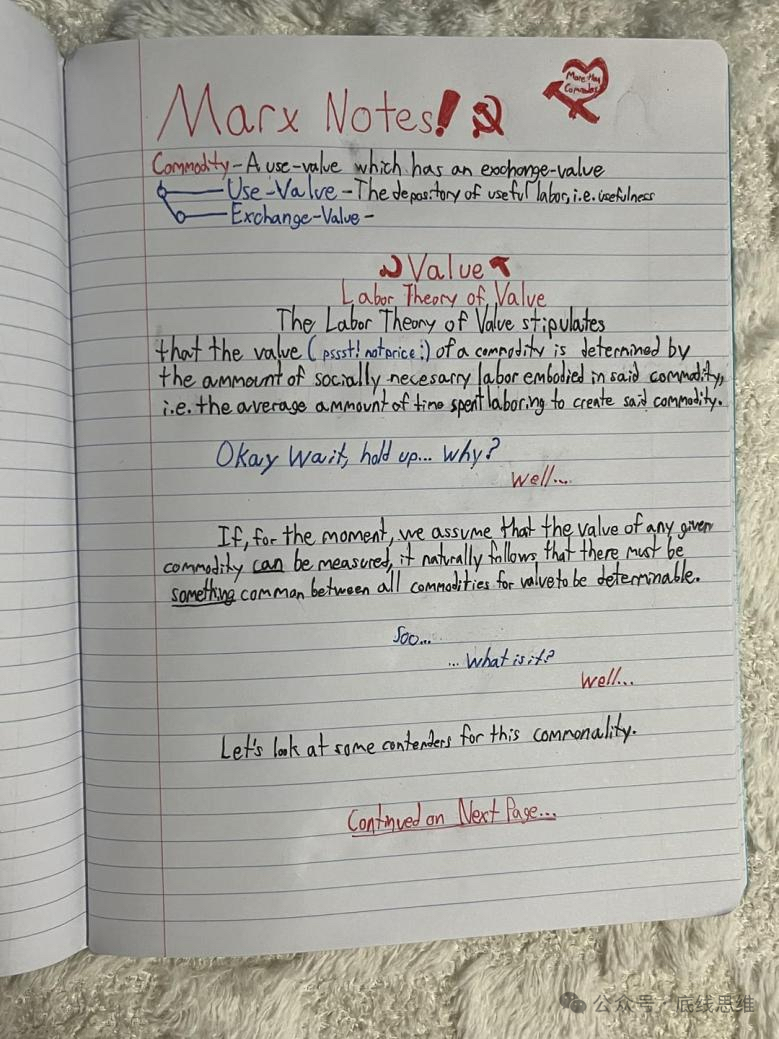 Marx Notes!
More than Comrades
Commodity - A use-value which has an exchange-value
Use-Value - The depository of useful labor, i.e. usefulness
Exchange-Value -
Value
Labor Theory of Value
The Labor Theory of Value stipulates
that the value (pssst! not price :) of a commodity is determined by
the ammount of socially necesarry labor embodied in said commodity,
i.e. the average ammount of time spent laboring to create said commodity.
Okay Wait, hold up... Why?
Well...
If, for the moment, we assume that the value of any given
commodity can be measured, it naturally follows that there must be
something comman between all commodities for value to be determinable.
Soo...
... What is it?
Well...
Let's look at some contenders for this commonality.
Continued on Next Page...
公众号 · 底线思维